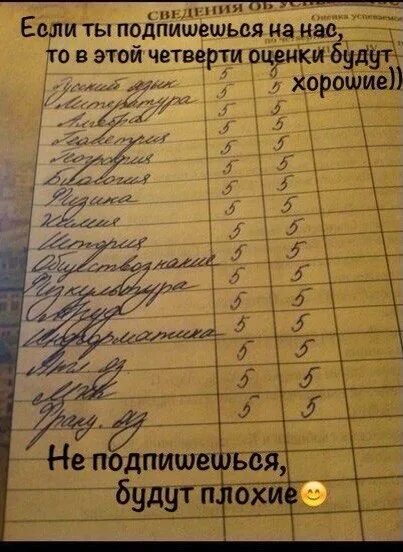 СВЕДЕНИЯ ОБ
Если ты подпишешься на нас,
то в этой четверти оценки будут
хорошие))
Русский язык 5 5
Литература 5 5
Алгебра 5 5
Геометрия 5 5
География 5 5
Биология 5 5
Физика 5 5
Химия 5 5
История 5 5
Обществознание 5 5
Физкультура 5 5
Труд 5 5
Информатика 5 5
Анг. яз 5 5
МХК 5 5
Франц. яз 5 5
Не подпишешься,
будут плохие😊